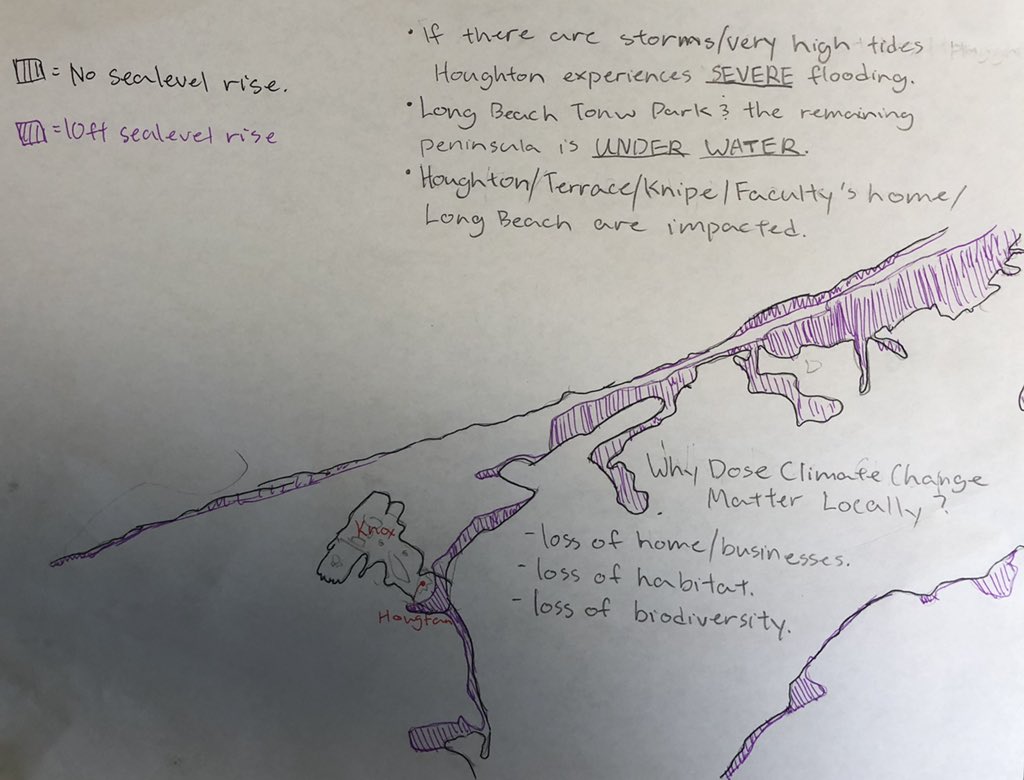 = No sealevel rise.
= 10ft sealevel rise
• If there are storms/very high tides
Houghton experiences SEVERE flooding.
• Long Beach Tonw Park & the remaining
peninsula is UNDER WATER.
• Houghton/Terrace/Knipe/Faculty's home/
Long Beach are impacted.
Why Dose Climate Change
Matter Locally?
- loss of home/businesses.
- loss of habitat.
- loss of biodiversity.
Knox
Hougtan